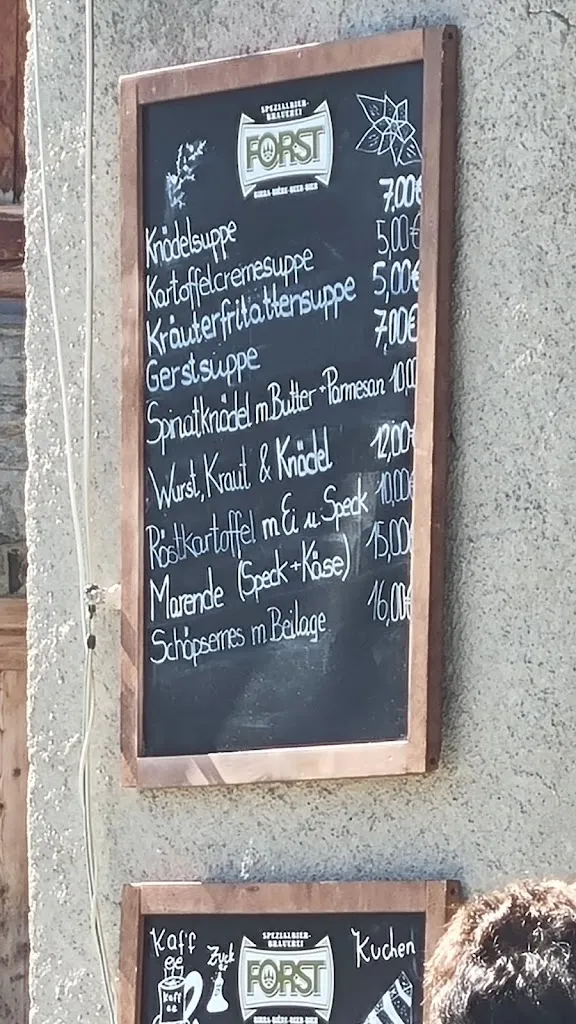 SPEZIALBIER-
BRAUEREI
FORST
BIRRA-BIÈRE-BEER-BIER
Knödelsuppe 7,00€
Kartoffelcremesuppe 5,00€
Kräuterfritattensuppe 5,00€
Gerstsuppe 7,00€
Spinatknödel m.Butter+Parmesan 10,00
Wurst, Kraut & Knödel 12,00€
Röstkartoffel m Ei u. Speck 10,00
Marende (Speck+Käse) 15,00
Schöpsernes m Beilage 16,00€
SPEZIALBIER-
BRAUEREI
FORST
BIRRA-BIÈRE-BEER-BIER
Kaff
ee
Zuck
Kuchen
Kaff
ee